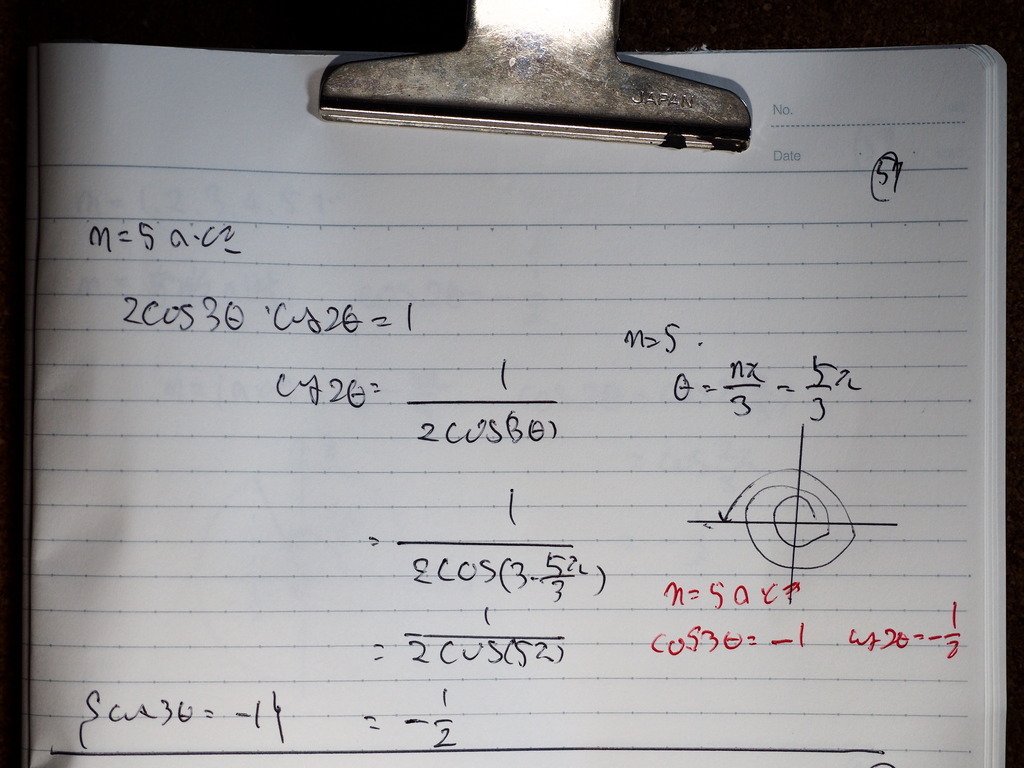 JAPAN
No.
Date
57
n=5 のとき
2cos3θ・cos2θ=1
n=5.
cos2θ= 1/2cos(3θ)
θ = nπ/3 = 5π/3
= 1/2cos(3・5π/3)
n=5 のとき
= 1/2cos(5π)
cos3θ=-1 cos2θ=-1/2
{cos3θ=-1} = -1/2